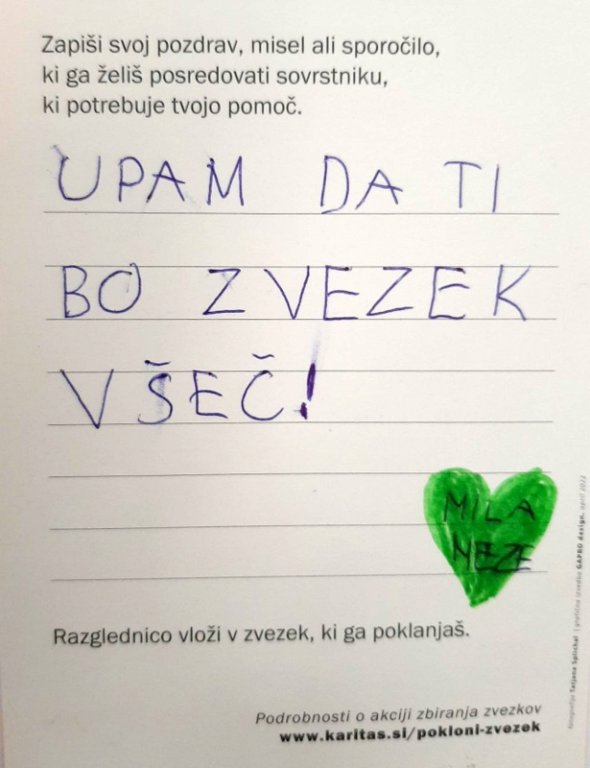 Zapiši svoj pozdrav, misel ali sporočilo,
ki ga želiš posredovati sovrstniku,
ki potrebuje tvojo pomoč.
UPAM DA TI
BO ZVEZEK
VŠEČ!
MILA
NEZE
Razglednico vloži v zvezek, ki ga poklanjaš.
Podrobnosti o akciji zbiranja zvezkov
www.karitas.si/pokloni-zvezek
fotografija Tatjana Splichal | grafična izvedba GAPRO design, april 2022